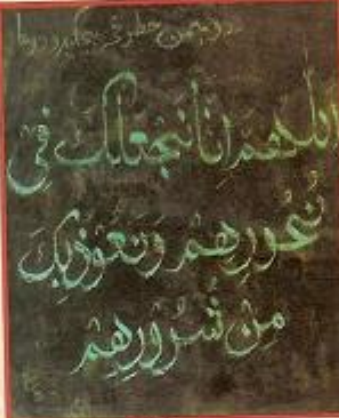 اَللّٰهُمَّ اِنَّا نَجْعَلُكَ فِيْ
نُحُوْرِهِمْ وَنَعُوْذُبِكَ
مِنْ شُرُوْرِهِمْ